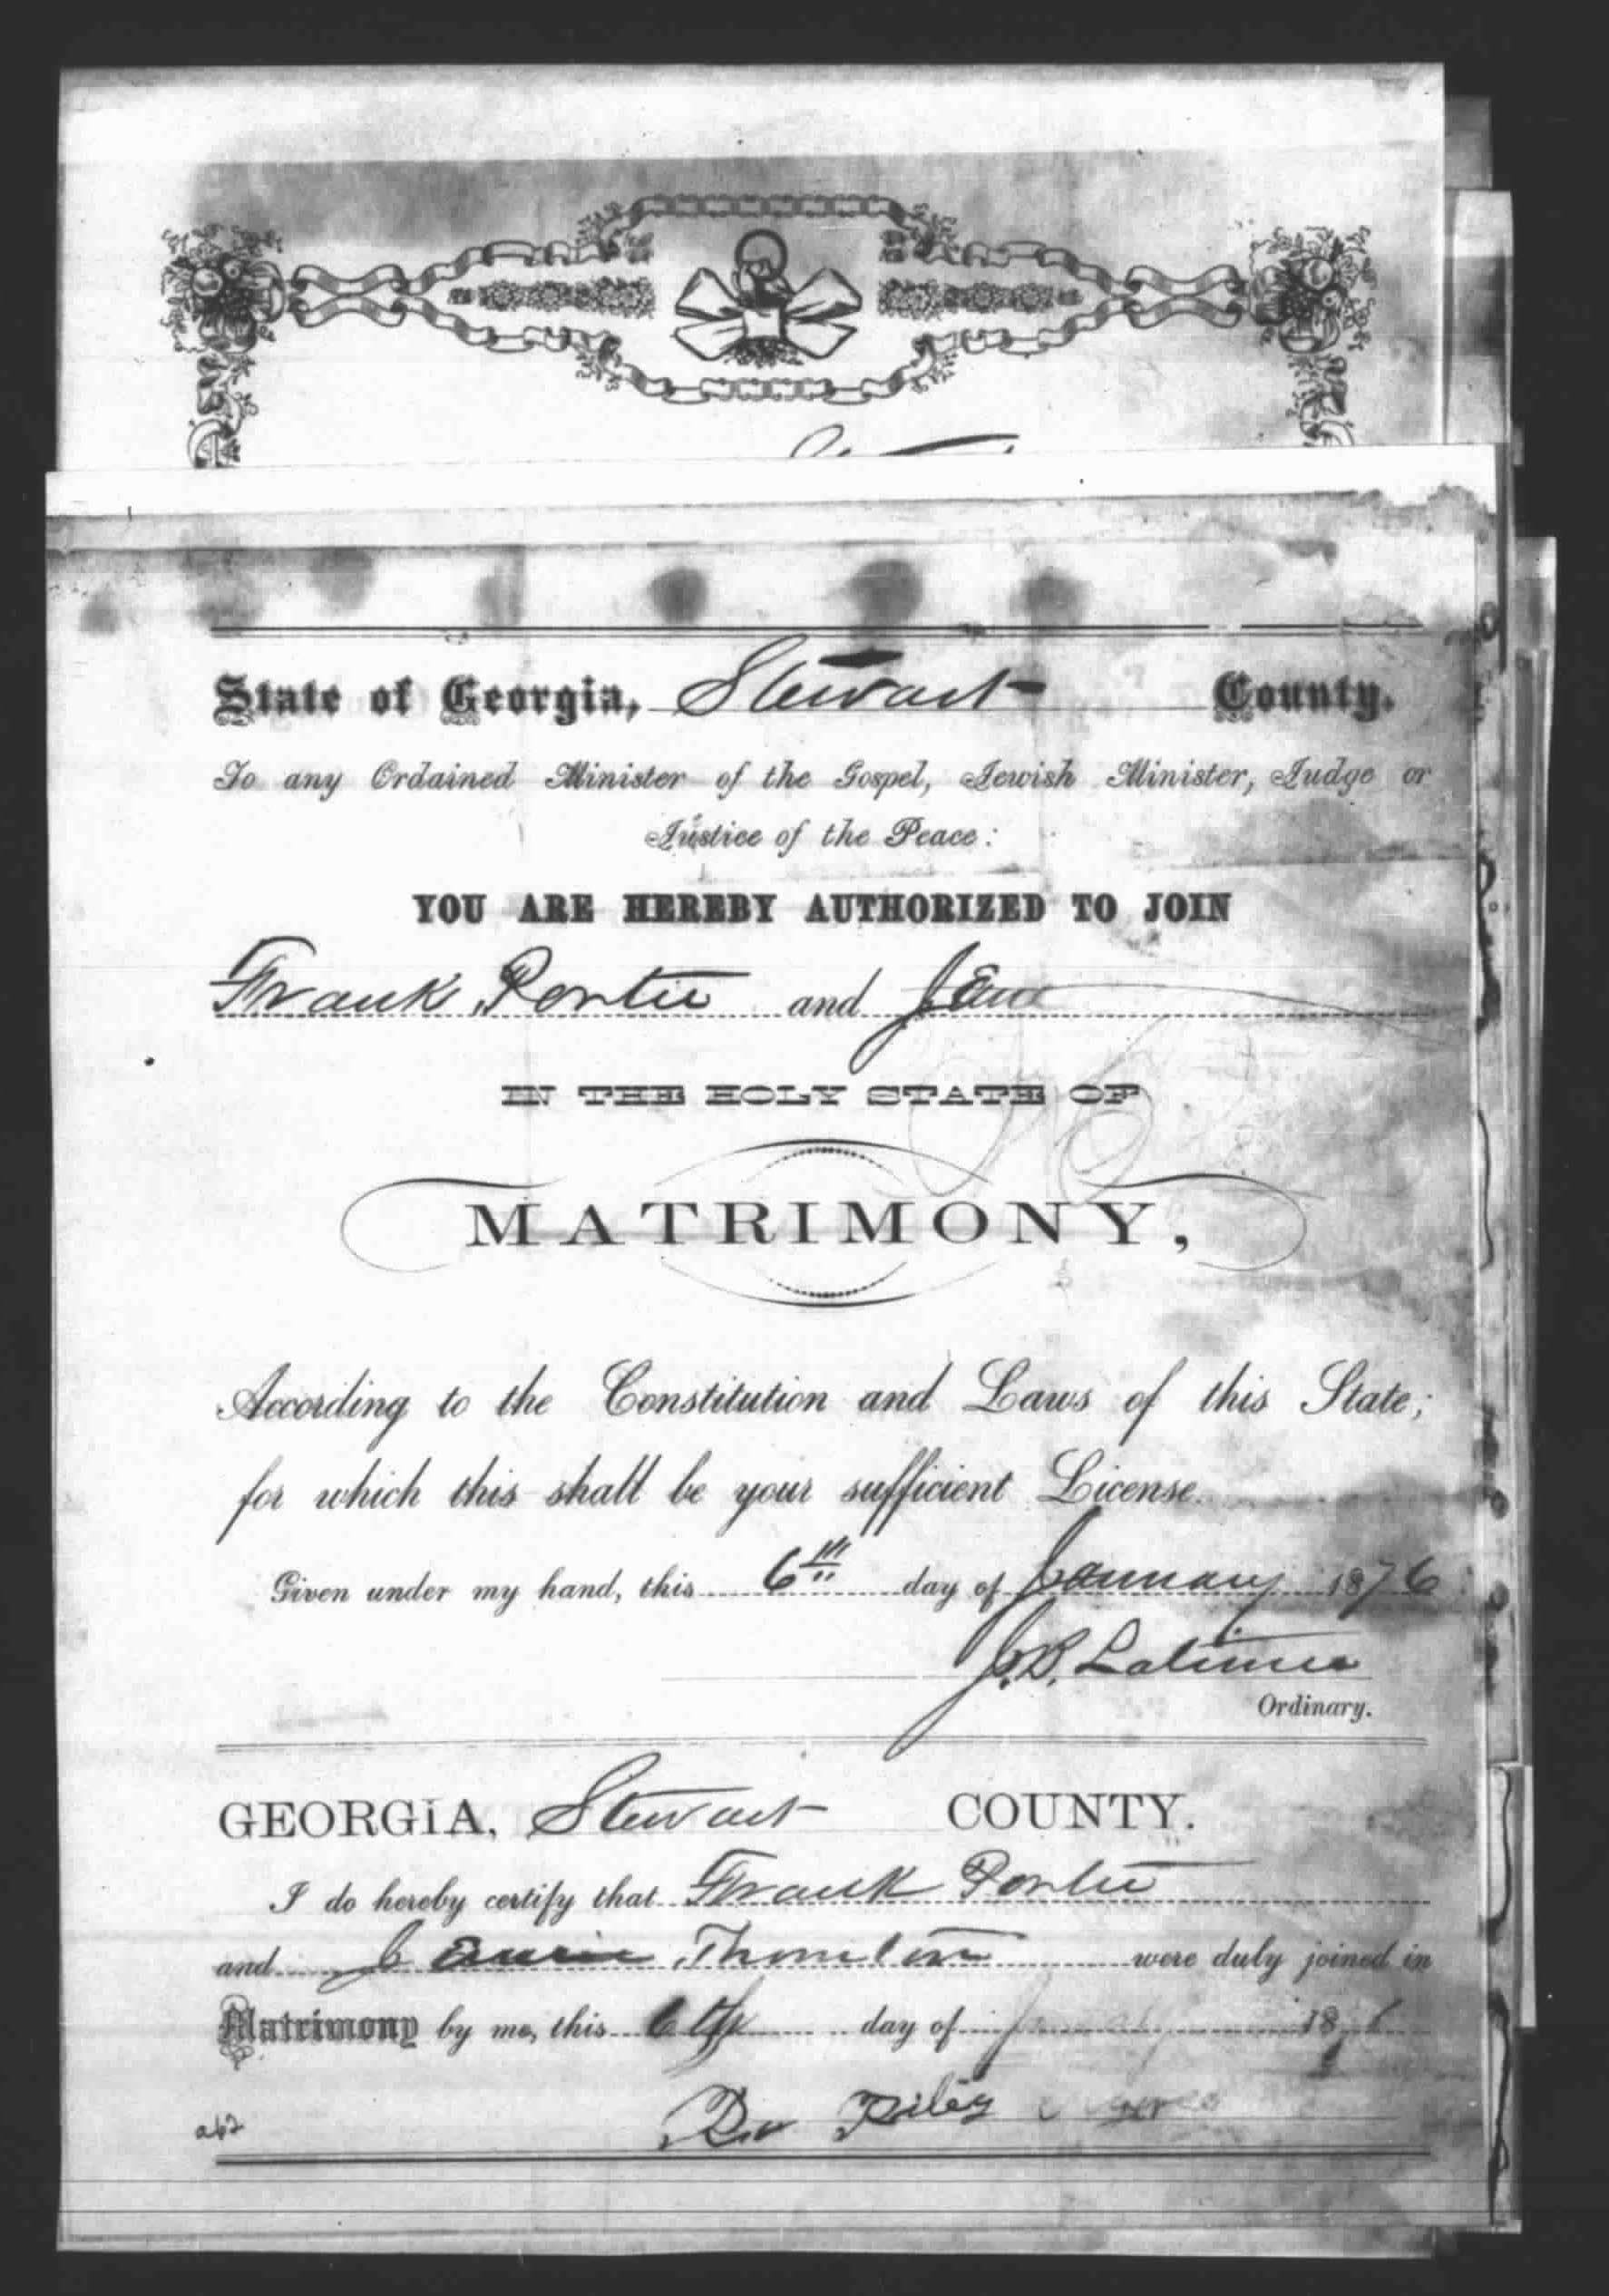 State of Georgia, Stewart County.
To any Ordained Minister of the Gospel, Jewish Minister, Judge or
Justice of the Peace:
YOU ARE HEREBY AUTHORIZED TO JOIN
Frank Porter and
IN THE HOLY STATE OF
MATRIMONY,
According to the Constitution and Laws of this State;
for which this shall be your sufficient License.
Given under my hand, this 6th day of January 1876
J.B. Latimer
Ordinary.
GEORGIA, Stewart COUNTY.
I do hereby certify that Frank Porter
and Thornton were duly joined in
Matrimony by me, this 6th day of January 1876
Riley